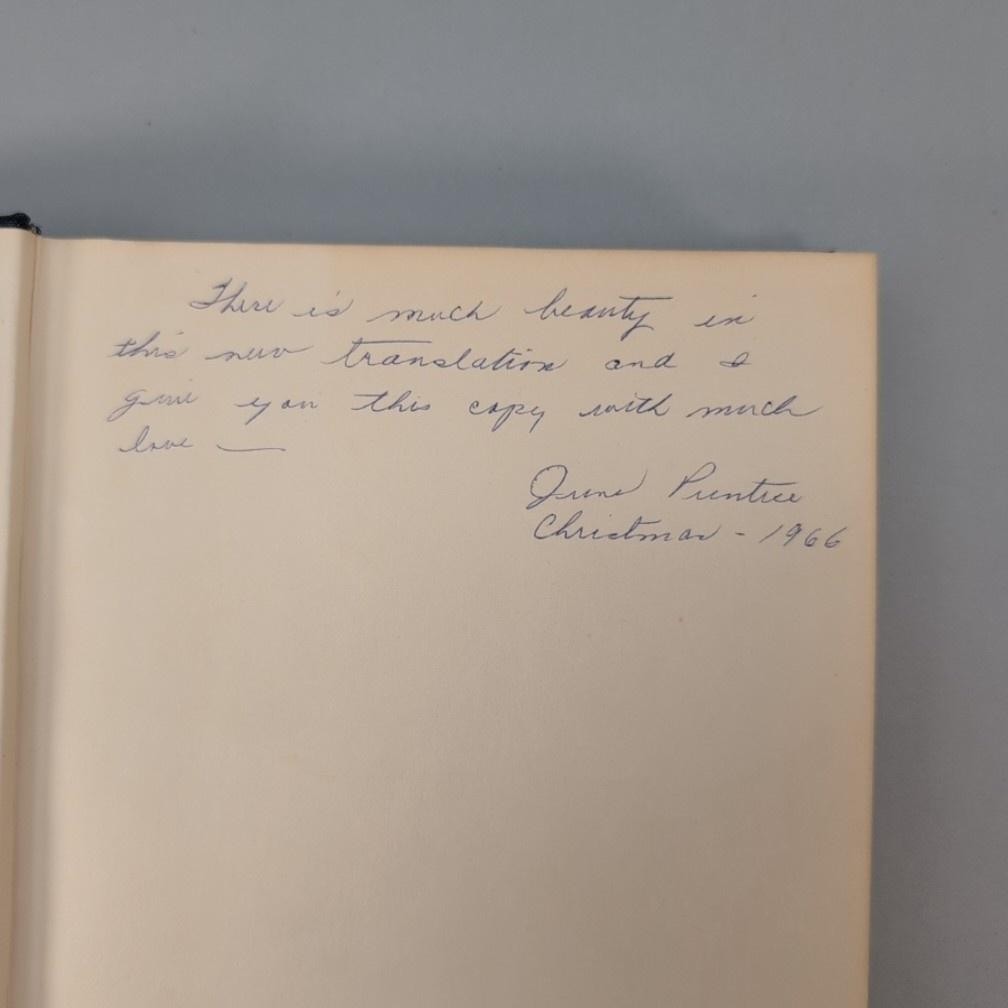 There is much beauty in
this new translation and I
give you this copy with much
love —
Prentice
Christmas - 1966